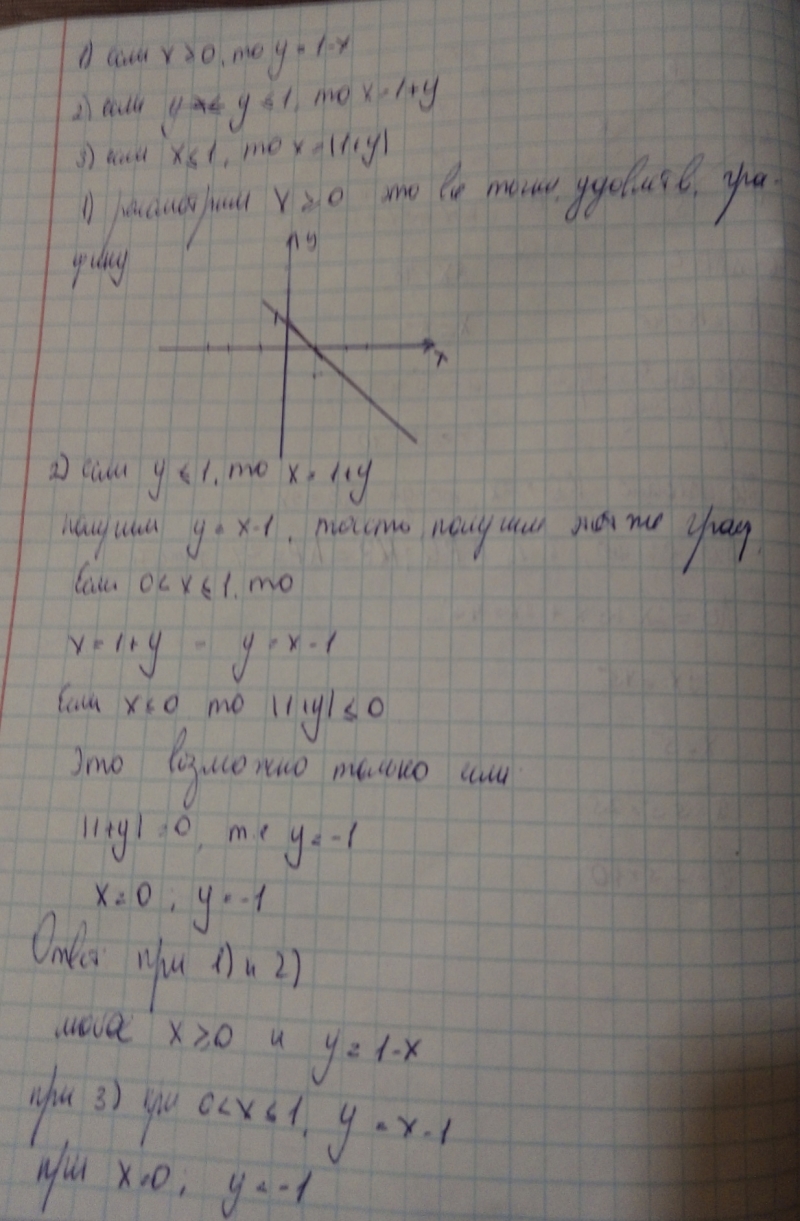 1) если x ≥ 0, то y = 1-x
2) если y ≤ 1, то x = 1+y
3) если x ≤ 1, то x = |1+y|
1) рассмотрим x ≥ 0 это все точки, удовлетв. гра-
фику
y
1
x
2) если y ≤ 1, то x = 1+y
получим y = x-1, получим же граф.
Если 0 < x ≤ 1, то
x = 1+y - y = x-1
Если x ≤ 0 то |1+y| ≤ 0
Это возможно только или
|1+y| = 0, т.е y = -1
x = 0; y = -1
Ответ при 1) и 2)
x ≥ 0 и y = 1-x
при 3) при 0 < x ≤ 1, y = x-1
при x = 0; y = -1